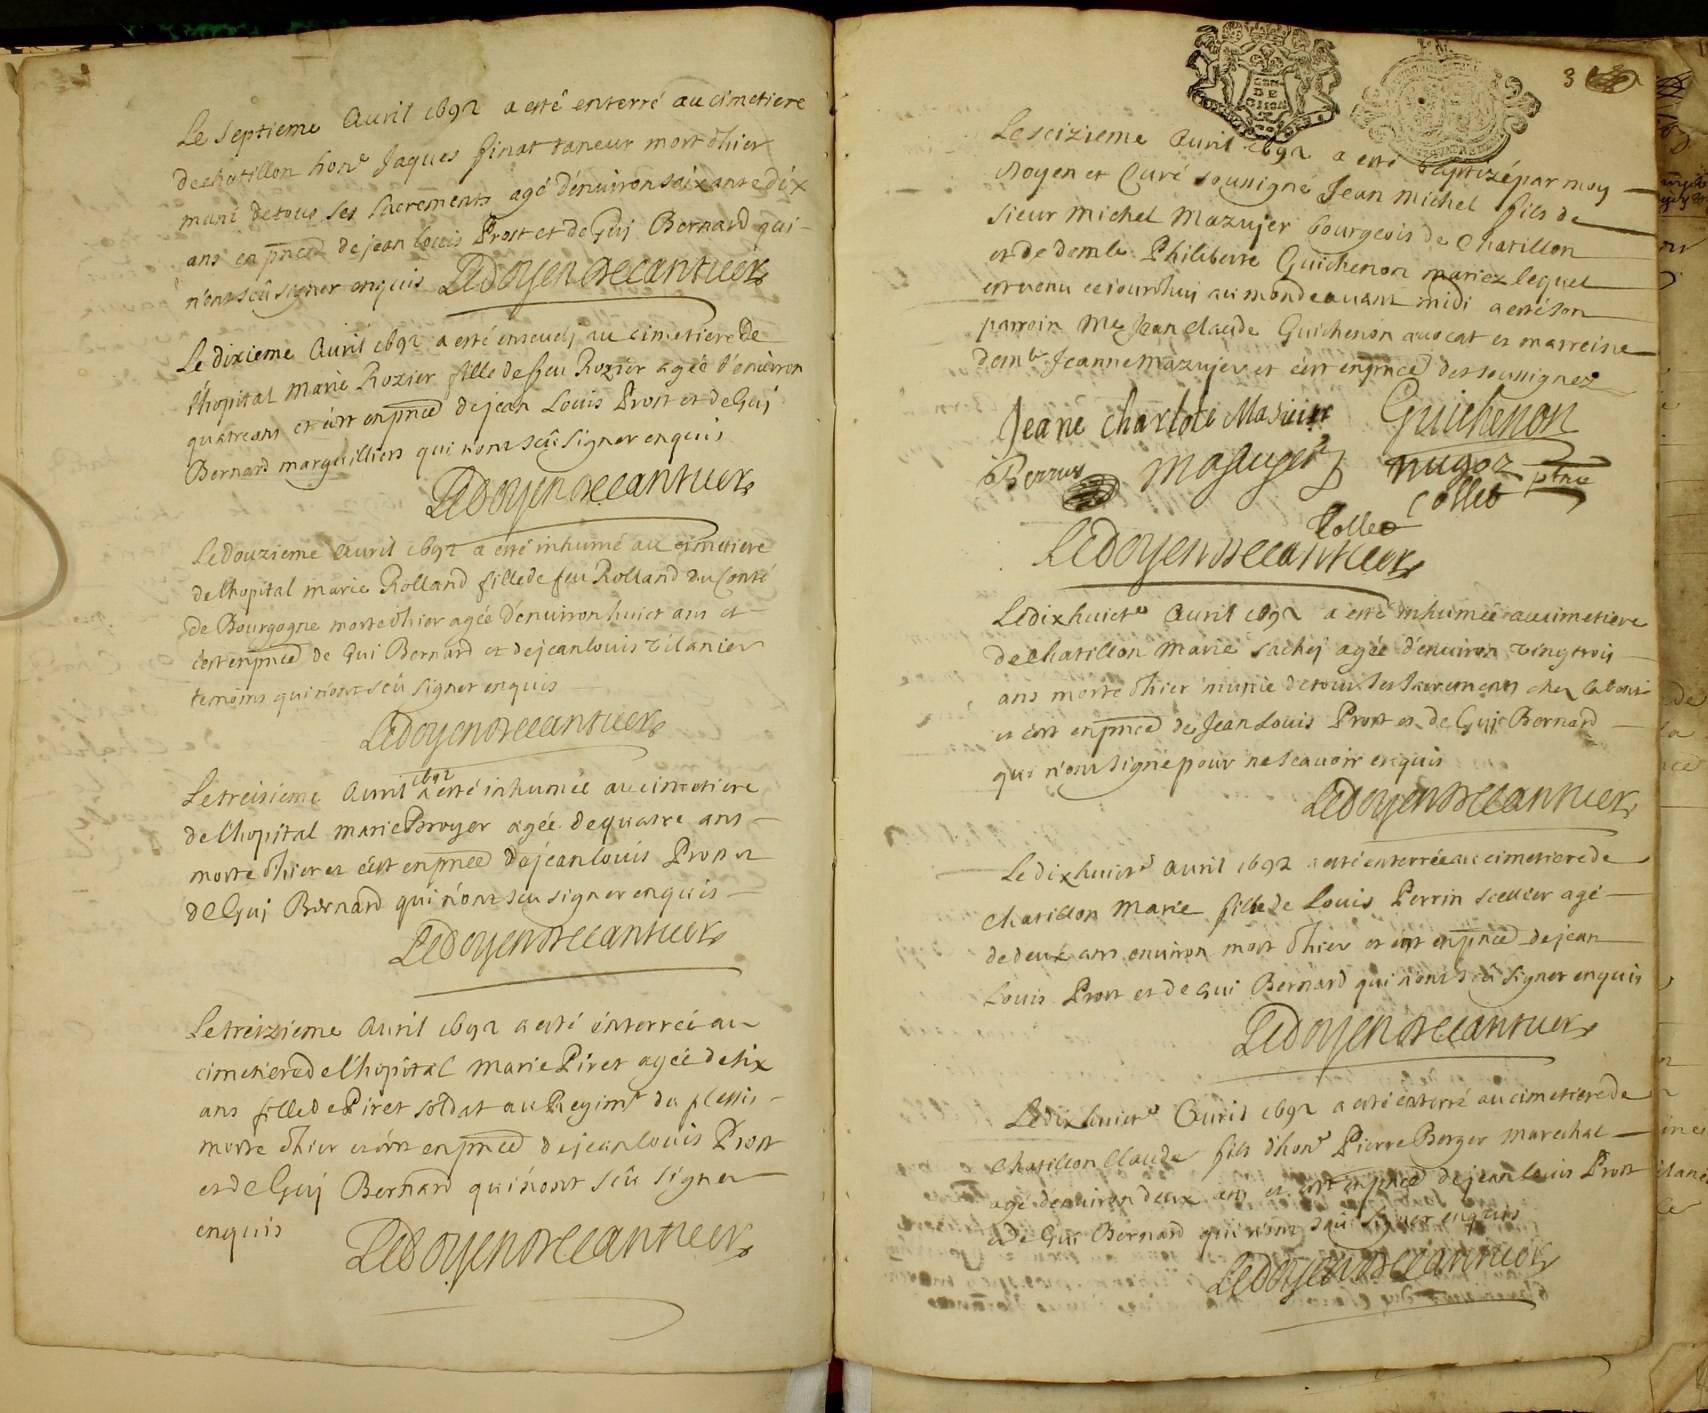 Le septieme Avril 1692 a esté enterré au cimetiere
de chatillon hon^e Jaques finat taneur mort d'hier
muni de tous ses sacrements agé d'enuiron soixante dix
ans en pnce de jean louis Prost et de Guj Bernard qui
n'ont sçû signer enquis Ledoyendecantuer
Le dixieme Auril 1692 a esté enseuelj au cimetiere De
l'hopital Marie Rozier fille de feu Rozier agée d'enuiron
quatre ans et c'est en pnce de jean Louis Prost et de Guj
Bernard marguilliers qui n'ont sçû signer enquis
Ledoyendecantuer
Le douzieme Auril 1692 a esté inhumé au cimetiere
de l'hopital marie Rolland fille de feu Rolland du Conté
de Bourgogne morte d'hier agée d'enuiron huict ans et
c'est en pnce de Gui Bernard et de jean louis
temoins qui n'ont sçû signer enquis
Ledoyendecantuer
1692
Le treisieme Auril a esté inhumée au cimetiere
de l'hopital marie Broyer agée de quatre ans
morte d'hier et c'est en pnce de jean louis Prost et
de Guj Bernard qui n'ont sçu signer enquis
Ledoyendecantuer
Le treizieme Auril 1692 a esté enterrée au
cimetiere de l'hopital Marie Piret agée de six
ans fille de Piret soldat au Regim^t du plessis
morte d'hier et c'est en pnce de jean louis Prost
et de Guj Bernard qui n'ont sçû signer
enquis Ledoyendecantuer
3
Le seizieme Auril 1692 a esté baptizé par moy
doyen et Curé soussigné Jean Michel fils de
sieur Michel Mazujer bourgeois de Chatillon
et de dem^le Philiberte Guichenon mariez lequel
est venu cejourd'huj au monde auant midi a esté son
parrein M^e Jean Claude Guichenon auocat et marreine
dem^le Jeanne Mazujer et c'est en pnce des soussignez
Jeane Charlote Guichenon
ptre
Collet
Collet
Ledoyendecantuer
Le dixhuict^e Auril 1692 a esté inhumée au cimetiere
de chatillon Marie agée d'enuiron vingtrois
ans morte d'hier munie de tous les sacrements chez
et c'est en pnce de Jean Louis Prost et de Guj Bernard
qui n'ont signé pour ne scauoir enquis
Ledoyendecantuer
Le dixhuict^e Auril 1692 a esté enterrée au cimetiere de
chatillon Marie fille de Louis Perrin agé
de deux ans enuiron mort d'hier et c'est en pnce de jean
Louis Prost et de Gui Bernard qui n'ont sçû signer enquis
Ledoyendecantuer
Le dixhuict^e Auril 1692 a esté enterré au cimetiere de
chatillon Claude fils d'hon^e Pierre Berger marechal
agé d'enuiron deux ans et c'est en pnce de jean louis Prost
et de Gui Bernard qui n'ont sçû signer enquis
Ledoyendecantuer